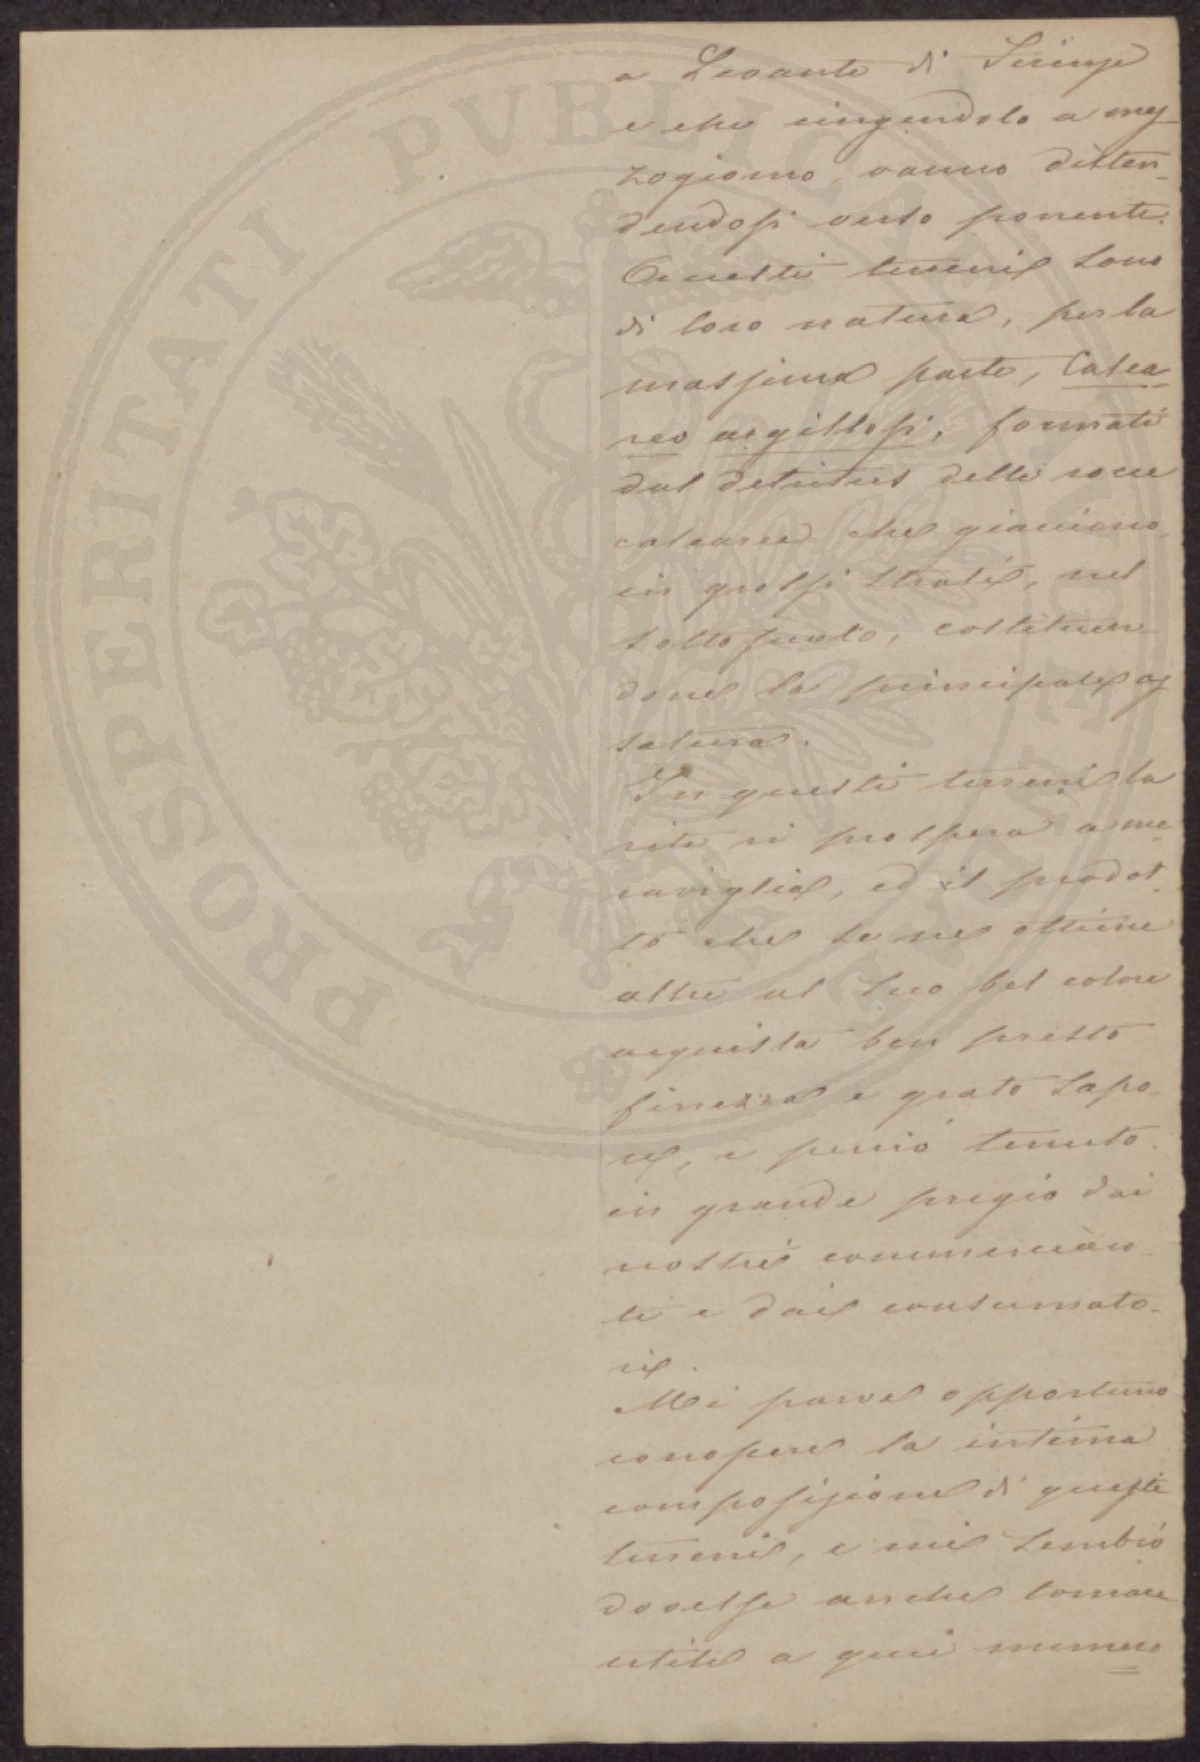 a Levante di Firenze
e che cingendolo a mez
zogiorno, vanno disten-
dendosi verso ponente.
Questi terreni sono
di loro natura, per la
massima parte, Calca
reo argillosi, formati
dal detritus delle rocce
calcaree che giacciono
in grossi strati, nel
sottosuolo, costituen
done la principale os
satura.
In questi terreni la
vite vi prospera a me
raviglia, ed il prodot-
to che se ne ottiene
oltre al suo bel colore
acquista ben presto
finezza e grato sapo-
re, e perciò tenuto
in grande pregio dai
nostri commercian
ti e dai consumato-
ri.
Mi parve opportuno
conoscere la intima
composizione di questi
terreni, e mi sembrò
dovesse anche tornare
utile a quei numero
PROSPERITATI PVBLICAE AVGENDAE